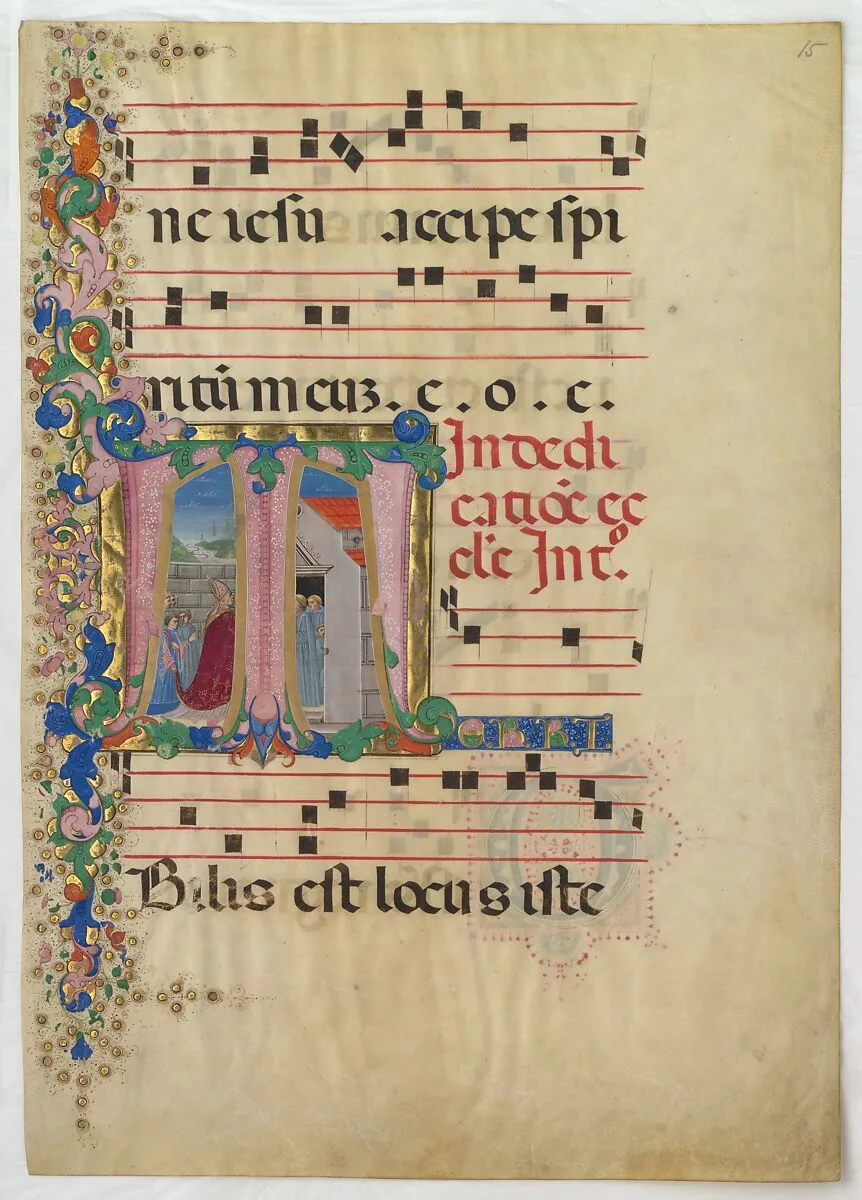 15
ne iesu accipe spi
ritū meuz. e. o. e.
In dedi
catiōe ec
cl'e Intº.
TERRI
Bilis est locus iste